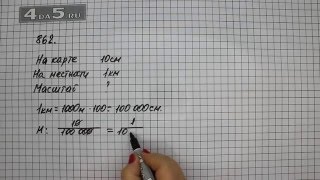 4DA5.RU
862.
На карте 10см
На местнати 1км
Масштаб ?
1км = 1000м · 100 = 100 000 см.
М: 10/100 000 = 1/10